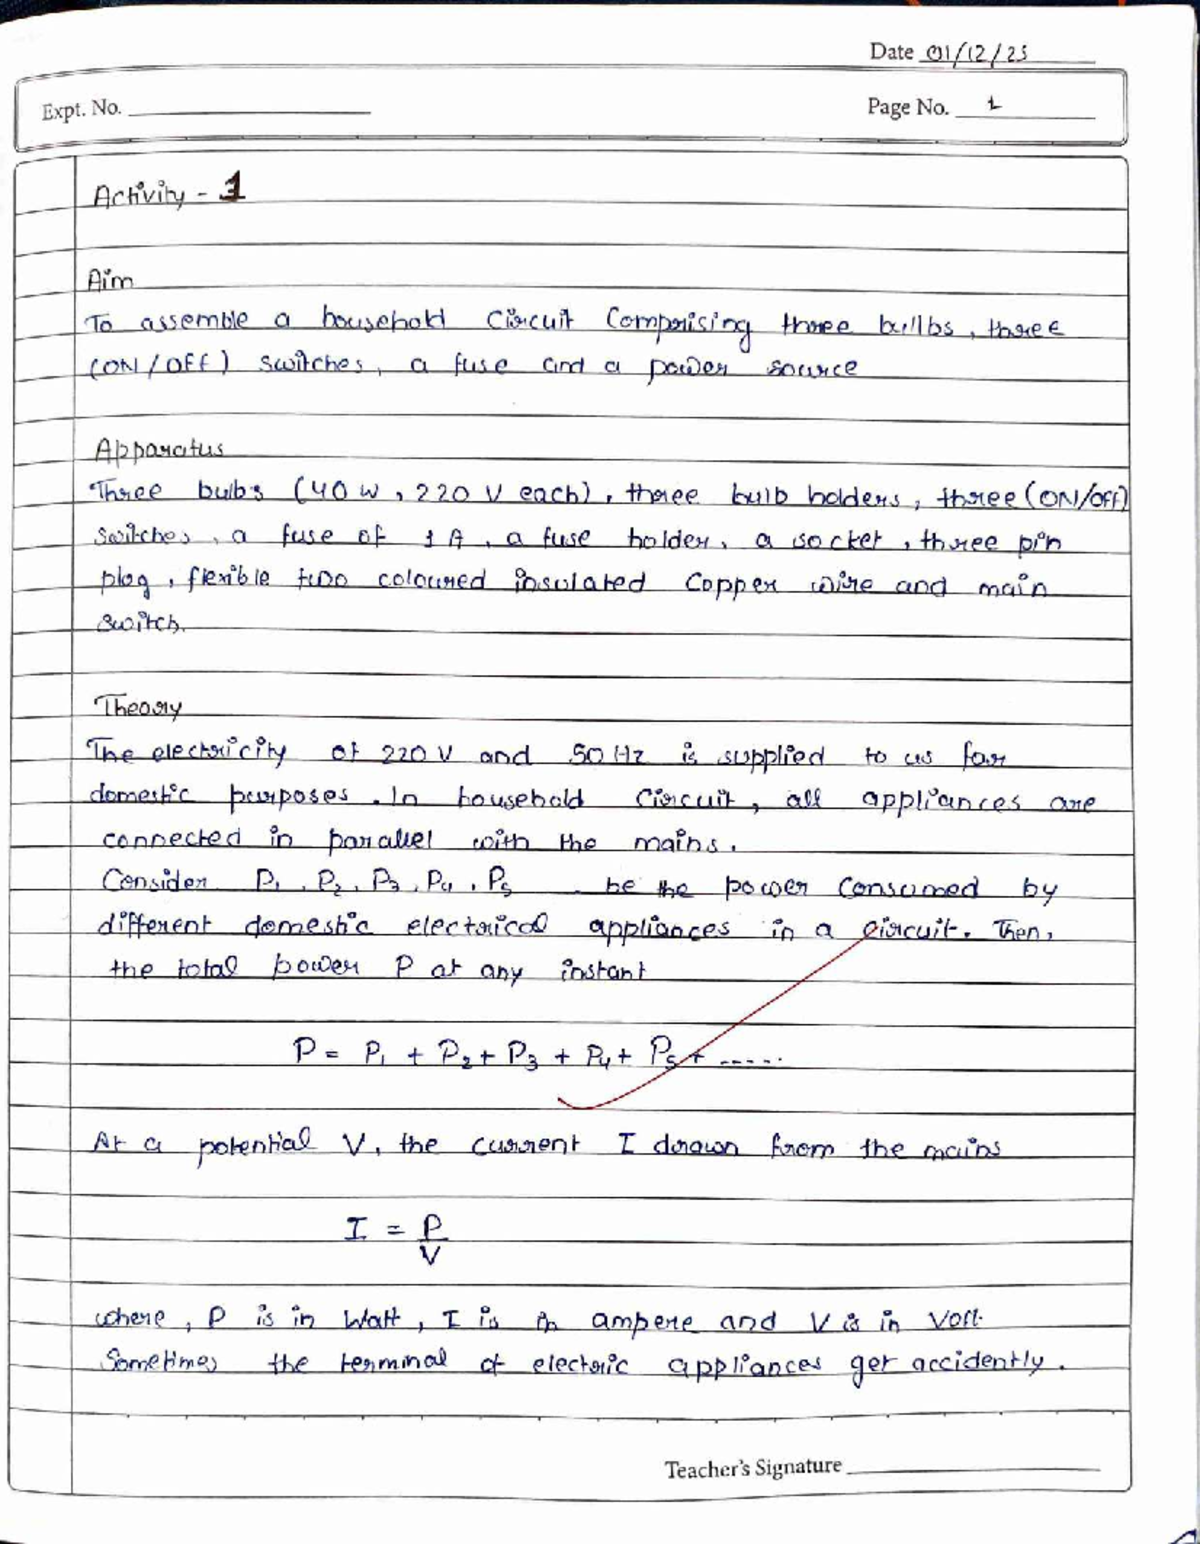 Date 01/12/25
Expt. No.
Page No. 1
Activity - 1
Aim
To assemble a household circuit comprising three bullbs, three
(ON/OFF) switches, a fuse and a power source
Apparatus
Three bulbs (40 W, 220 V each), three bulb holders, three (ON/OFF)
switches, a fuse of 1 A, a fuse holder, a socket, three pin
plog, flexible two coloured insulated copper wire and main
switch.
Theory
The electricity of 220 V and 50 Hz is supplied to us for
domestic purposes. In household circuit, all appliances are
connected in parallel with the mains.
Consider P₁, P₂, P₃, P₄, P₅ be the power consumed by
different domestic electrical appliances in a circuit. Then,
the total power P at any instant
P = P₁ + P₂ + P₃ + P₄ + P₅ + ......
At a potential V, the current I drawn from the mains
I = P/V
where, P is in Watt, I is in ampere and V is in Volt.
Sometimes the terminal of electric appliances get accidently.
Teacher's Signature